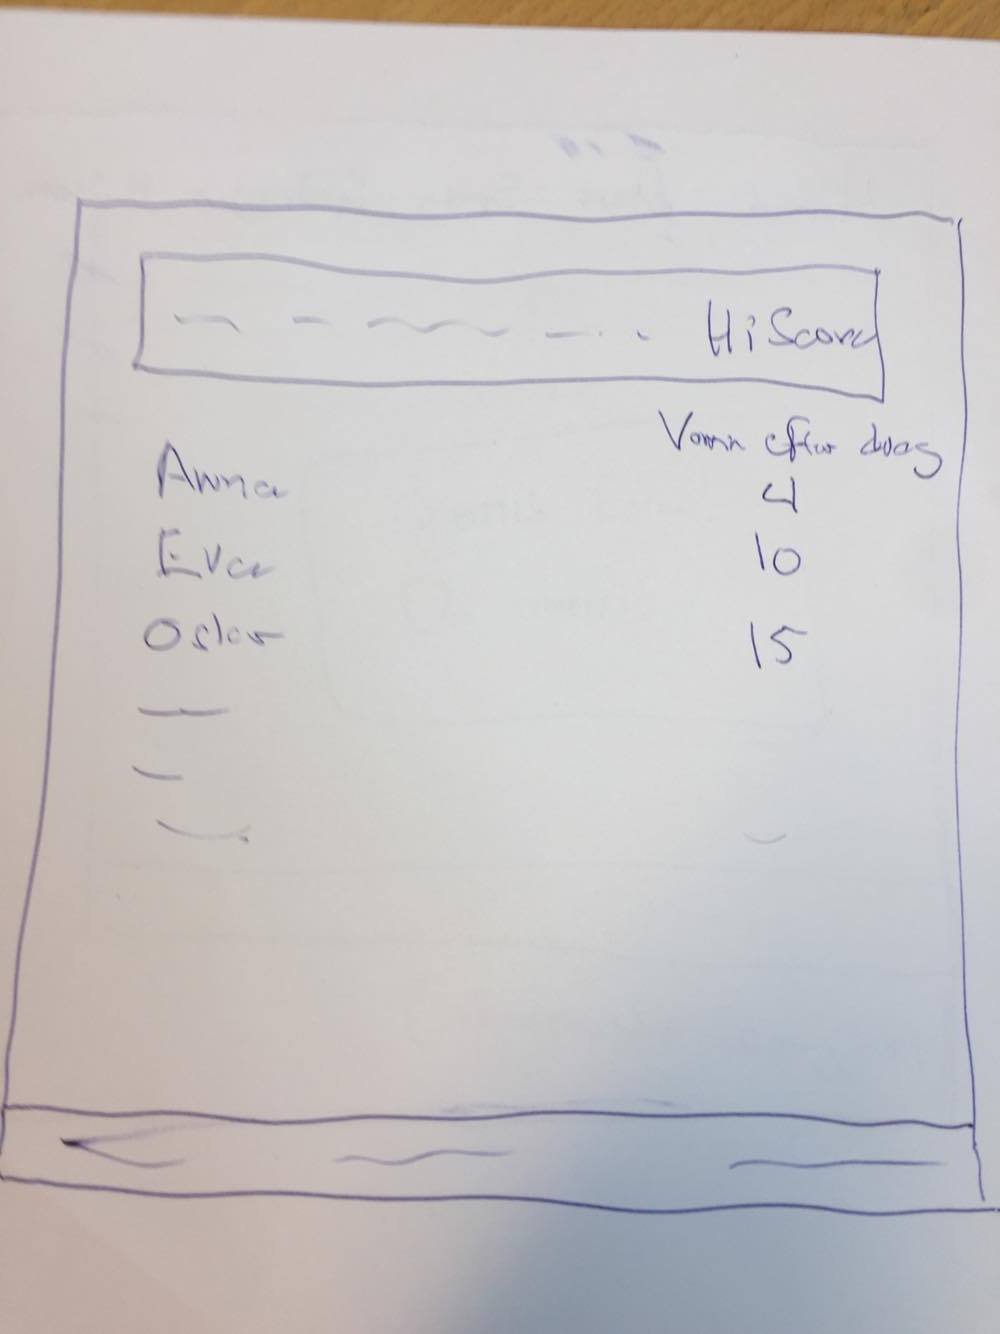 HiScore
Vann efter drag
Anna 4
Eva 10
Oskar 15